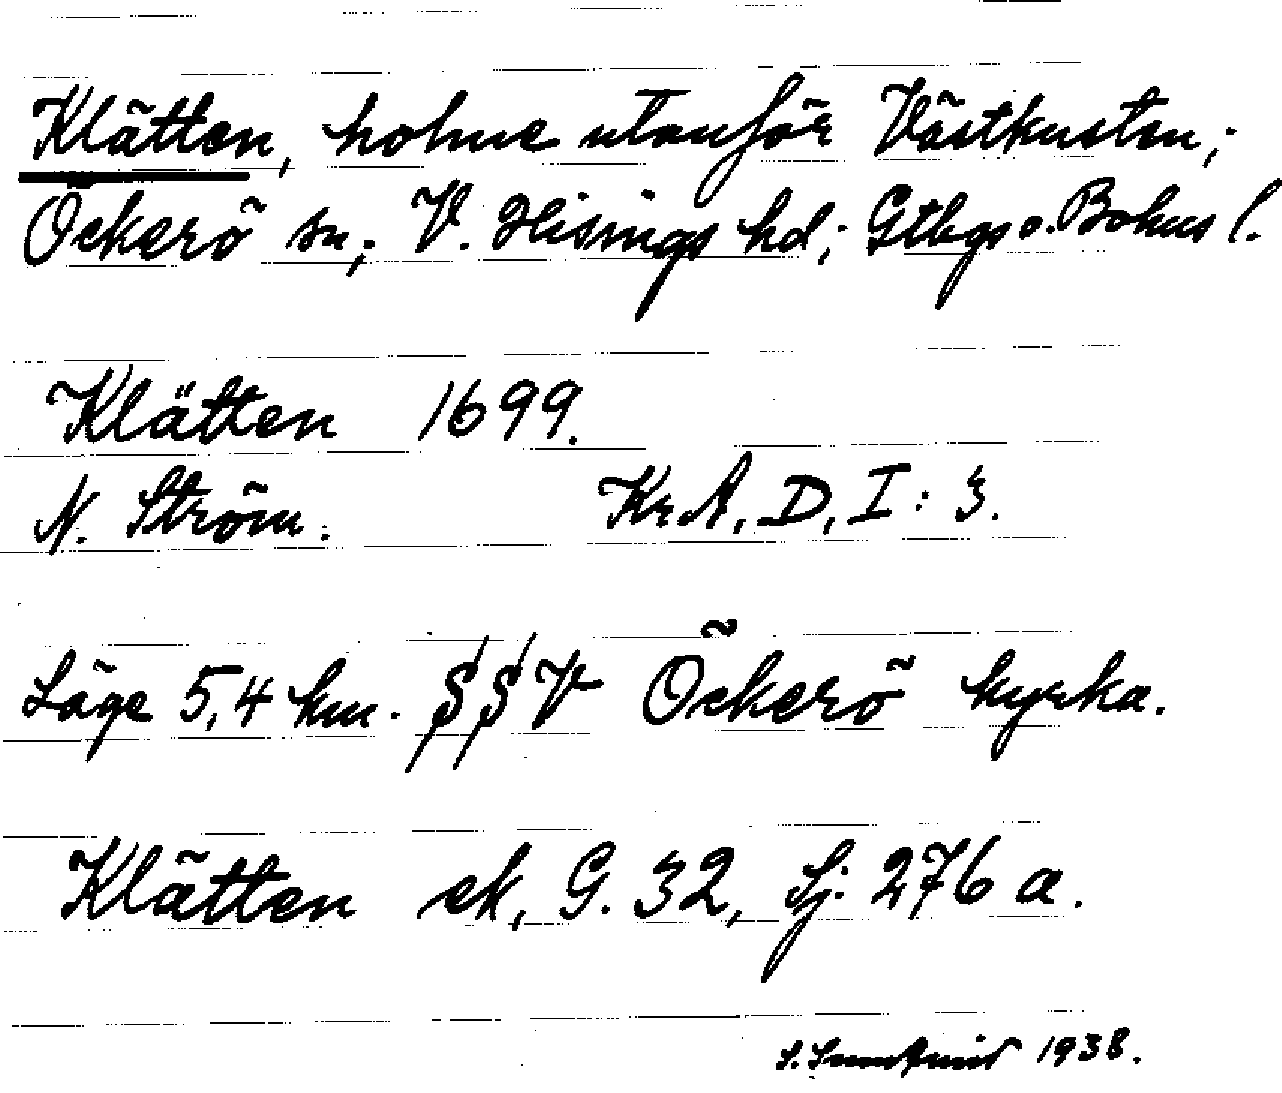 Klätten, holme utanför Västkusten;
Öckerö sn; V. Hisings hd; Gtbgs o. Bohus l.
Klätten 1699.
N. Ström. Kr.A. D, I: 3.
Läge 5,4 km. SSV Öckerö kyrka.
Klätten ek, G. 32, Sj: 276 a.
S. 1938.